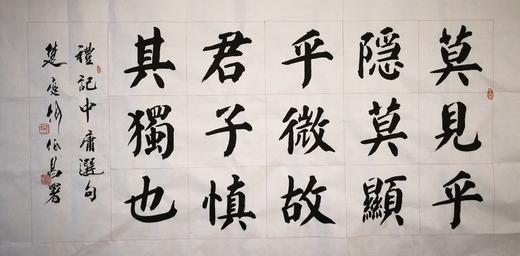 莫見乎
隱莫顯
乎微故
君子慎
其獨也
禮記中庸選句